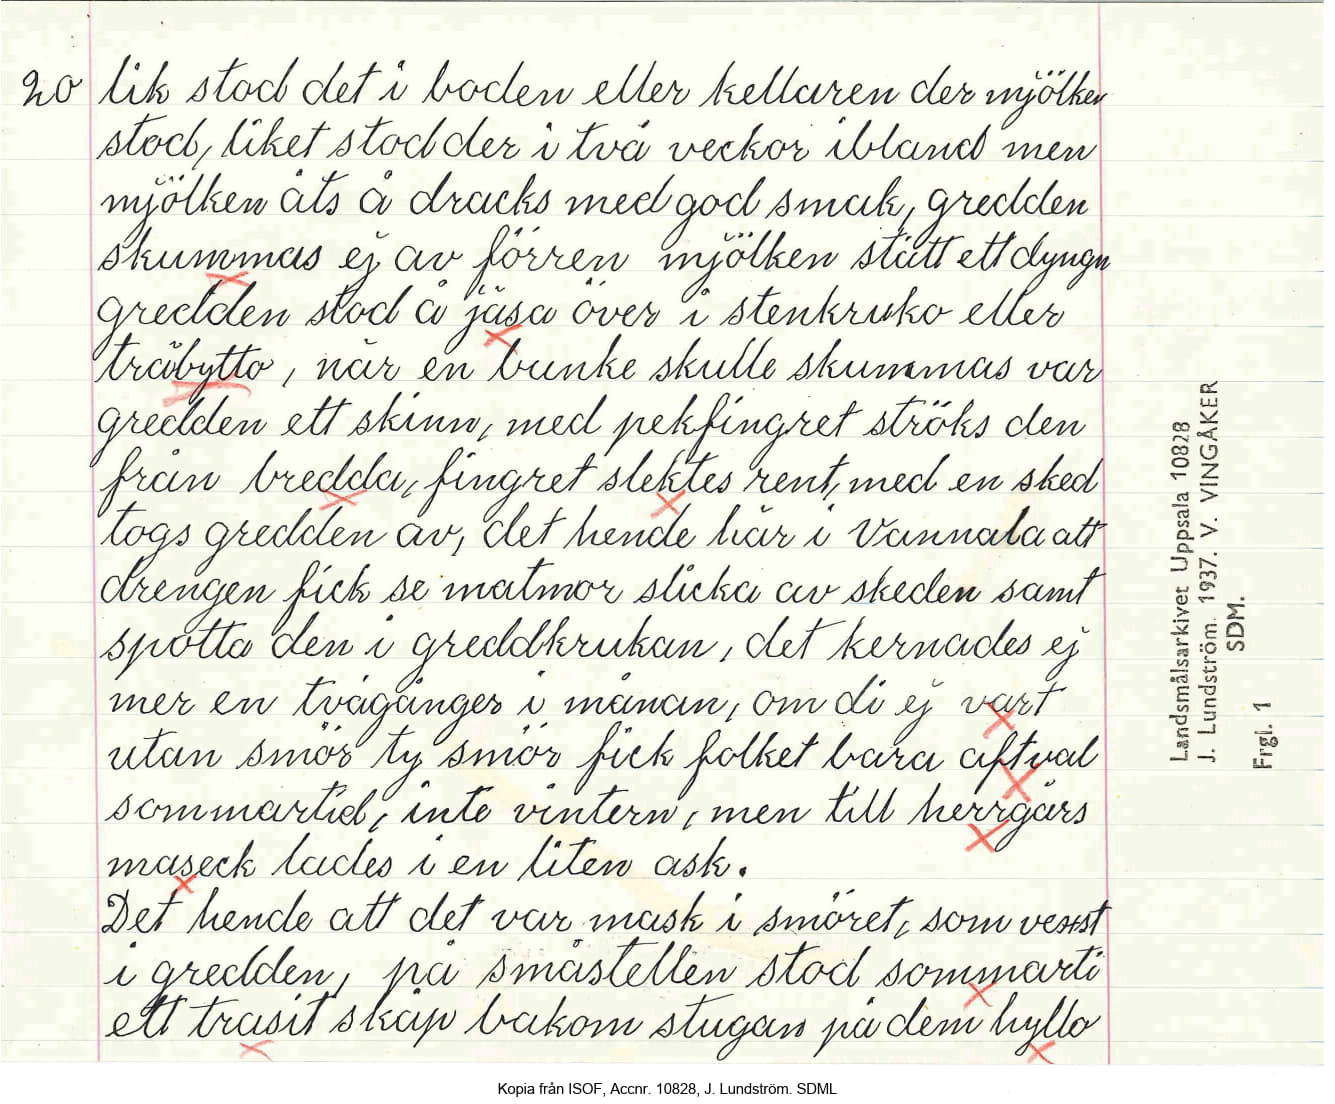 20 lik stod det i boden eller kellaren der mjölken
stod, liket stod der i två veckor ibland men
mjölken åts å dracks med god smak, gredden
skummas ej av förren mjölken stått ett dyngn
gredden stod å jäsa över i stenkruko eller
träbytto, när en bunke skulle skummas var
gredden ett skinn, med pekfingret ströks den
från bredda, fingret slektes rent, med en sked
togs gredden av, det hende här i Vannala att
drengen fick se matmor slicka av skeden samt
spotta den i greddkrukan, det kernades ej
mer en två gånger i månan, om di ej vart
utan smör ty smör fick folket bara aftval
sommartid, inte vintern, men till herrgårs
maseck lades i en liten ask.
Det hende att det var mask i smöret, som vext
i gredden, på småstellen stod sommarti
ett trasit skåp bakom stugan på dem hyllo
Landsmålsarkivet Uppsala 10828
J. Lundström. 1937. V. VINGÅKER
SDM.
Frgl. 1
Kopia från ISOF, Accnr. 10828, J. Lundström. SDML